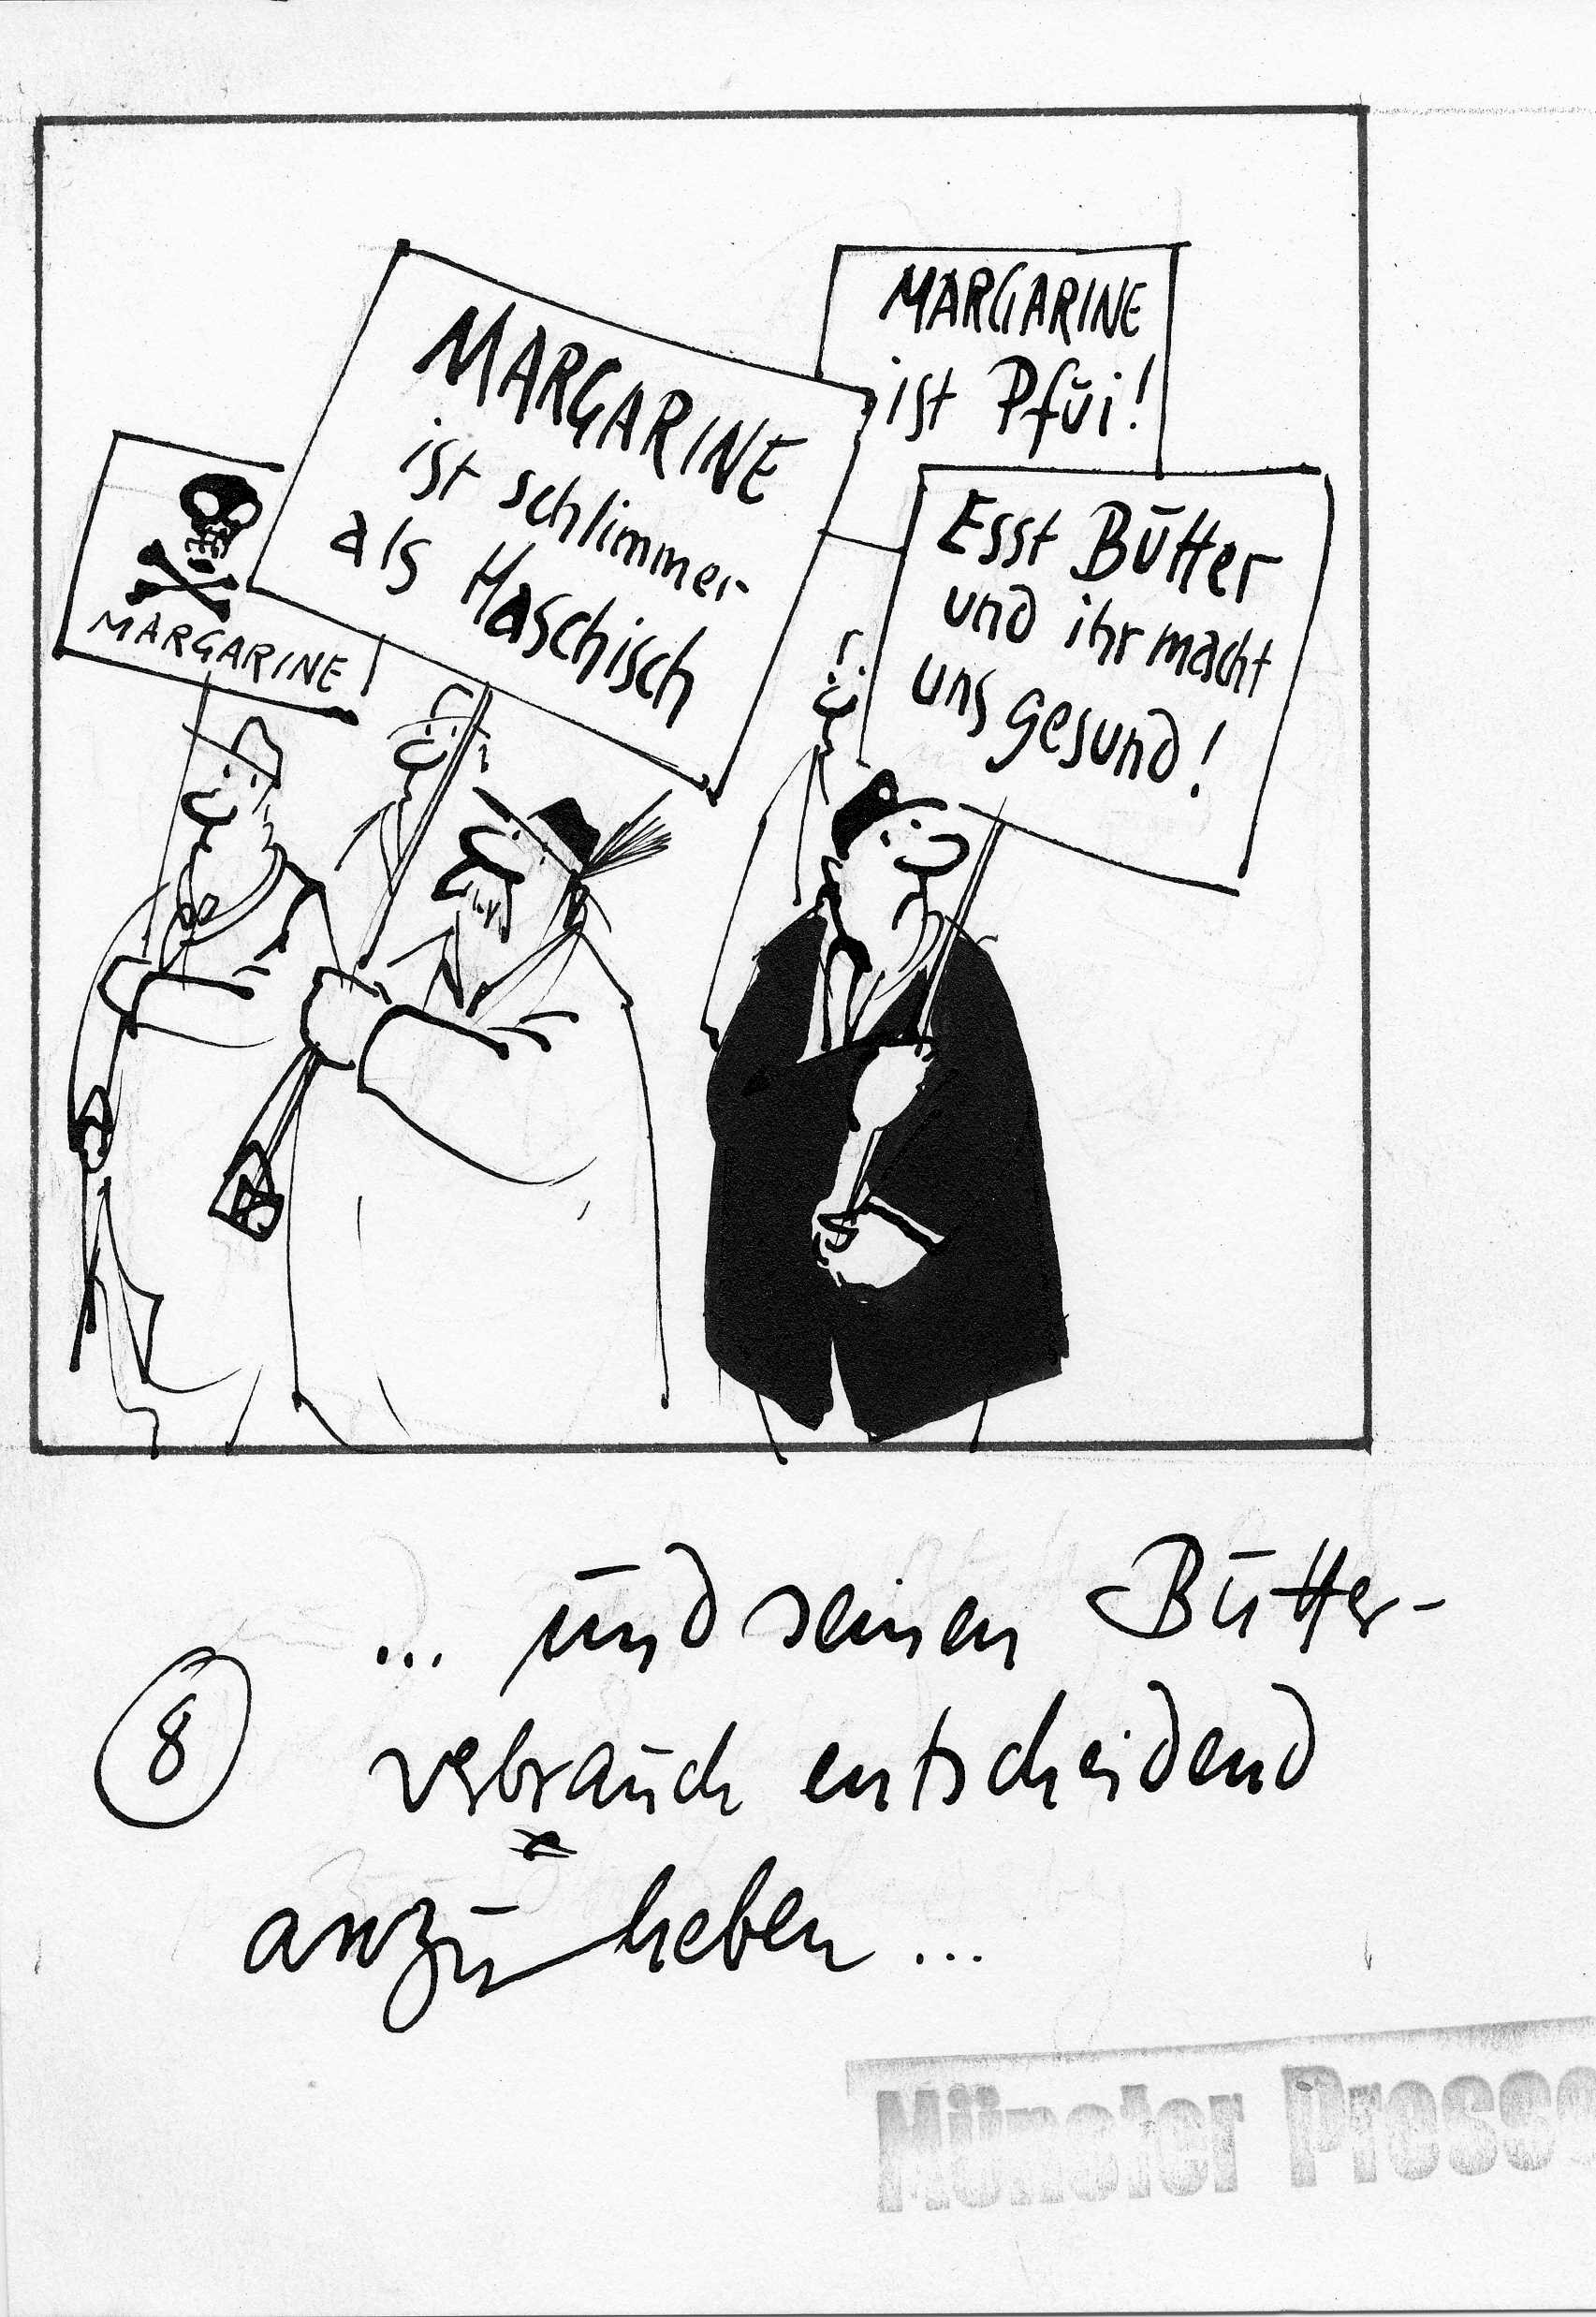 MARGARINE
ist schlimmer
als Haschisch
MARGARINE
ist Pfui!
MARGARINE
Esst Butter
und ihr macht
uns gesund!
... und seinen Butter-
8
verbrauch entscheidend
anzuheben ...
Münster Presse